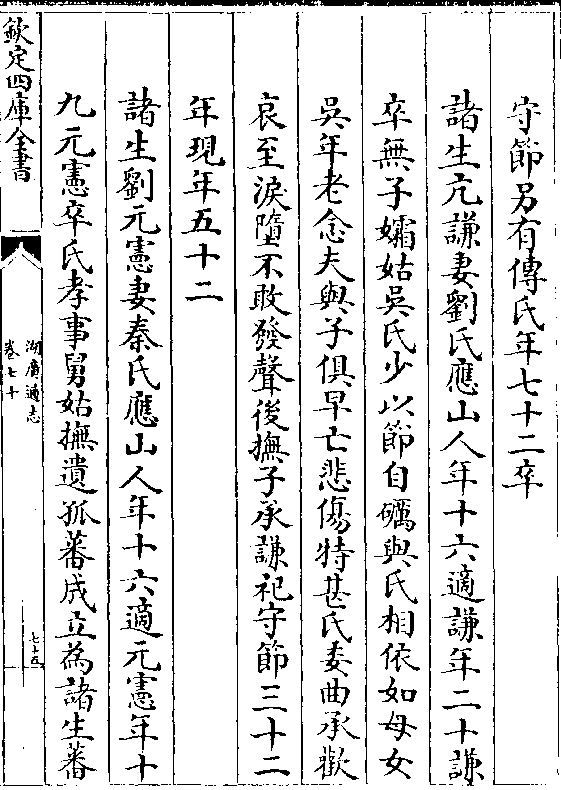 守節另有傳氏年七十二卒
諸生亢謙妻劉氏應山人年十六適謙年二十謙
卒無子孀姑吳氏少以節自礪與氏相依如母女
吳年老念夫與子俱早亡悲傷特甚氏委曲承歡
哀至淚墮不敢發聲後撫子承謙祀守節三十二
年現年五十二
諸生劉元憲妻秦氏應山人年十六適元憲年十
九元憲卒氏孝事舅姑撫遺孤蕃成立為諸生蕃
欽定四庫全書
湖廣通志
卷七十
七十五